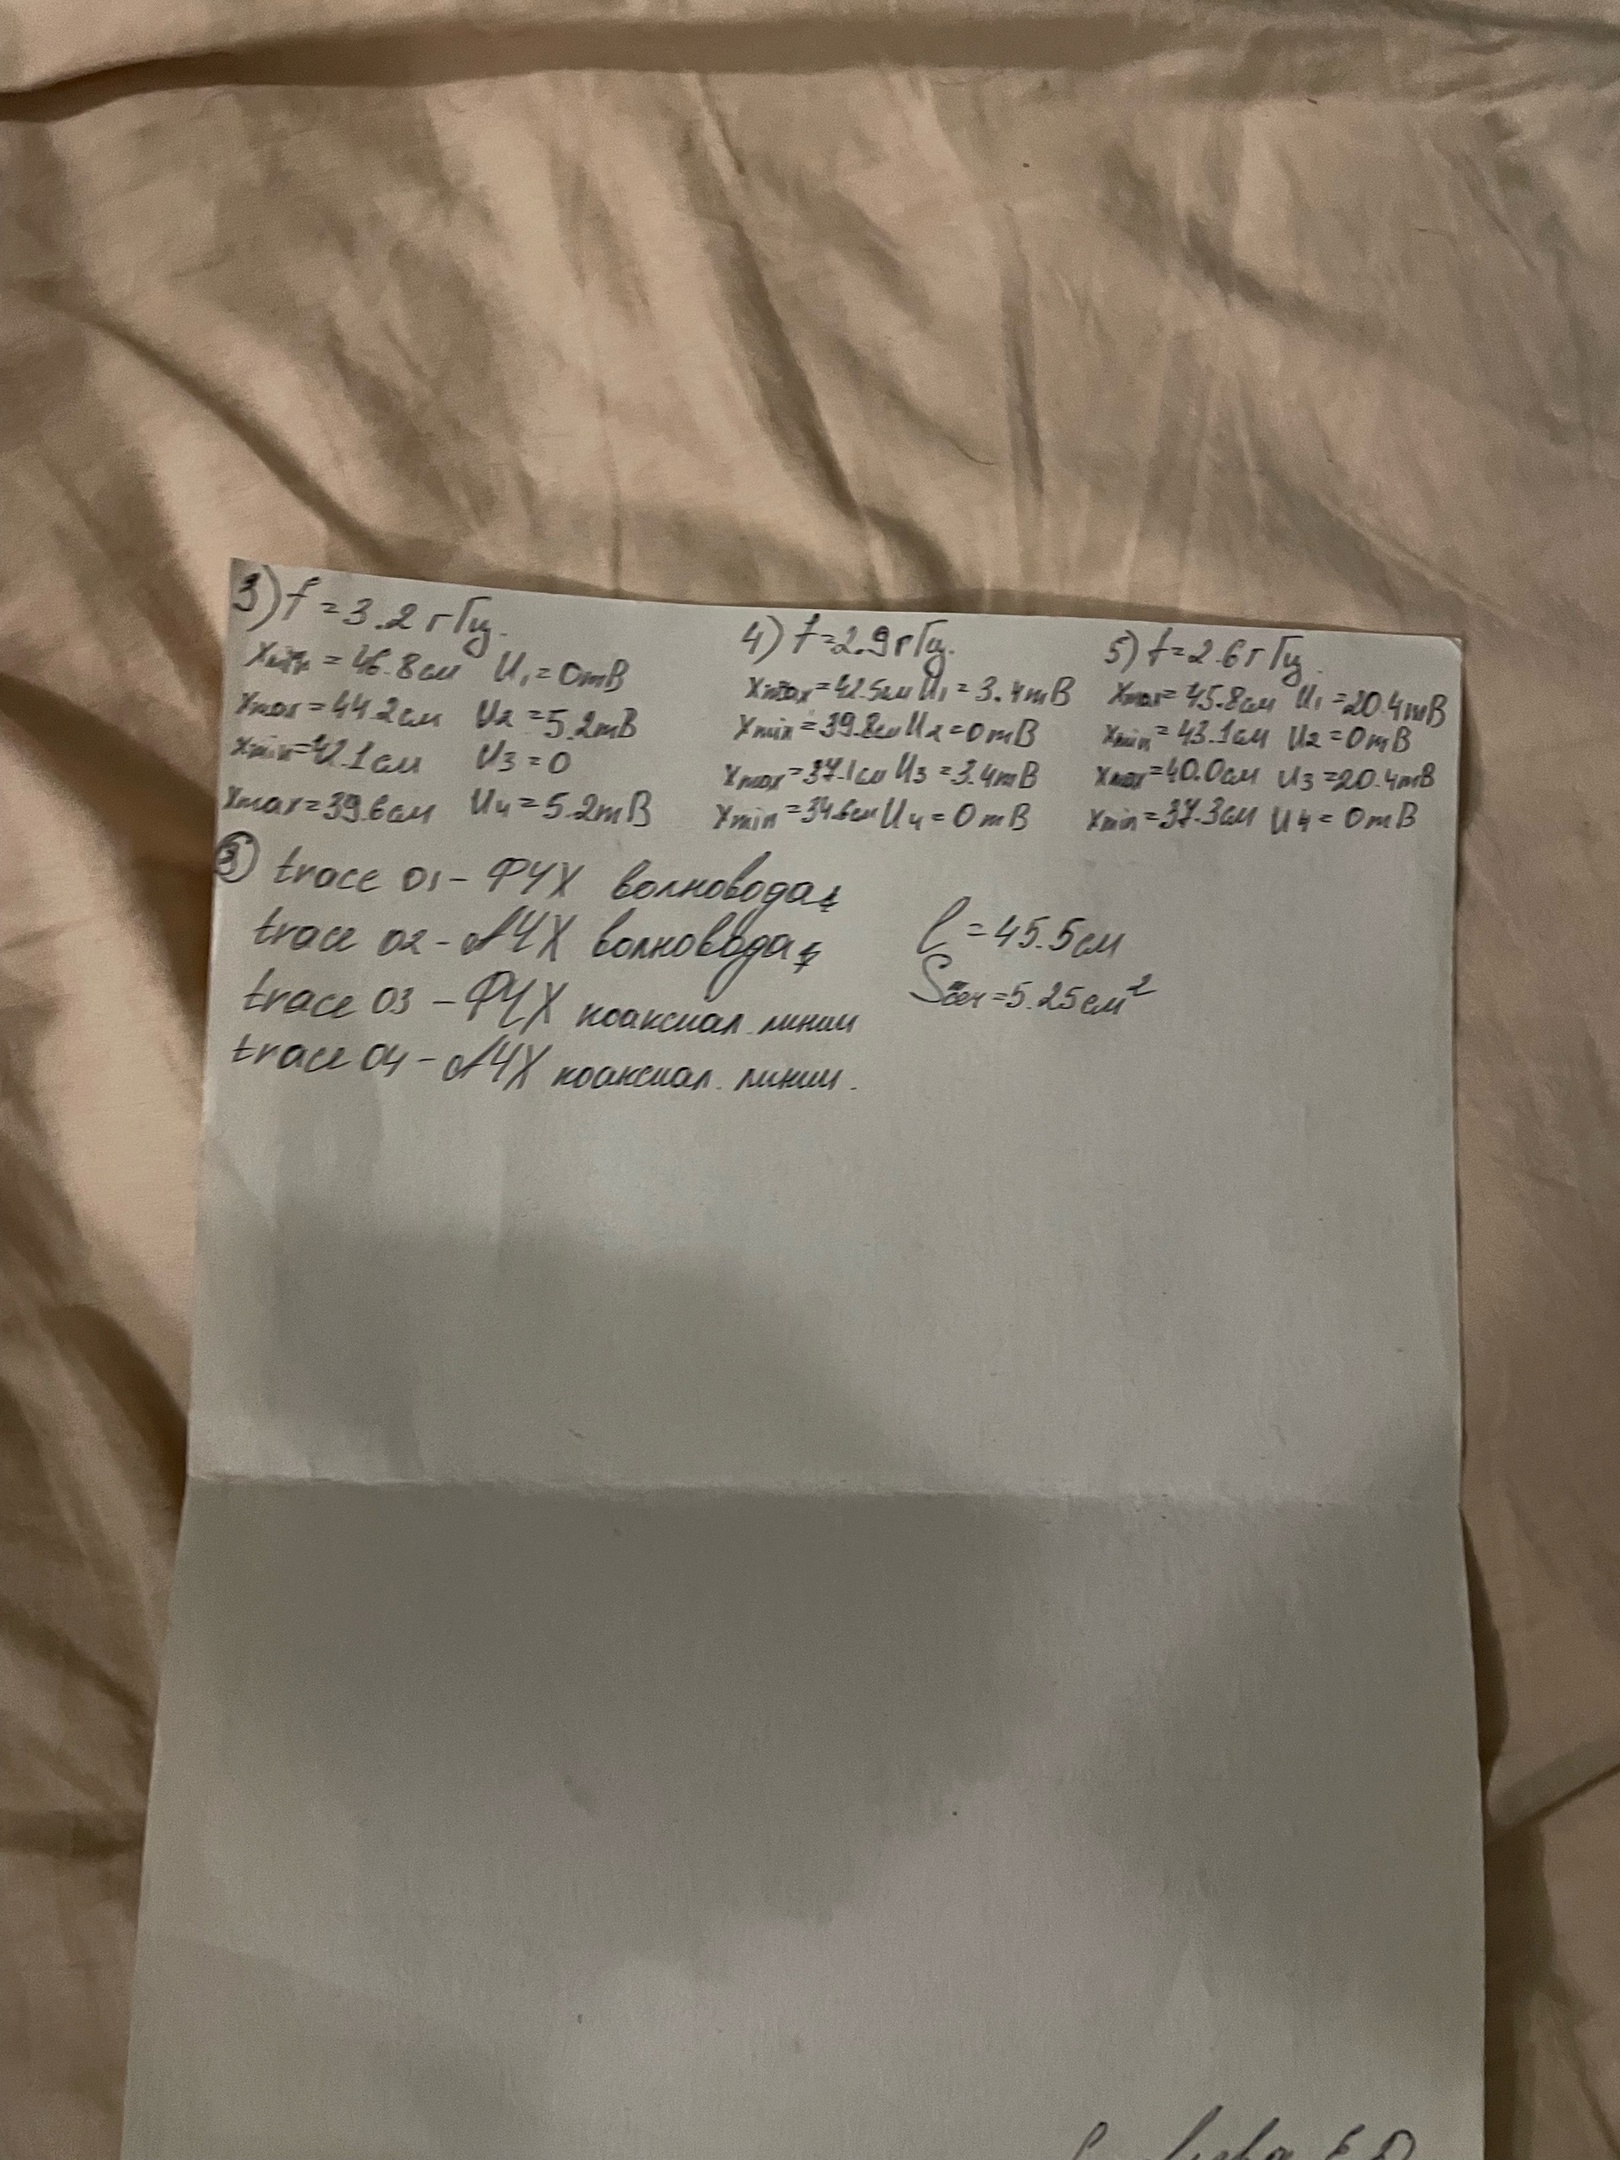 3) f = 3.2 гГц.
Xmin = 46.8см U1 = 0mВ
Xmax = 44.2см U2 = 5.2mВ
Xmin = 42.1см U3 = 0
Xmax = 39.6см U4 = 5.2mВ
4) f = 2.9 гГц.
Xmax = 42.5см U1 = 3.4mВ
Xmin = 39.8см U2 = 0mВ
Xmax = 37.1см U3 = 3.4mВ
Xmin = 34.6см U4 = 0mВ
5) f = 2.6 гГц.
Xmax = 45.8см U1 = 20.4mВ
Xmin = 43.1см U2 = 0mВ
Xmax = 40.0см U3 = 20.4mВ
Xmin = 37.3см U4 = 0mВ
③ trace 01 - ФЧХ волновода
trace 02 - АЧХ волновода
trace 03 - ФЧХ коаксиал. линии
trace 04 - АЧХ коаксиал. линии.
l = 45.5см
Sсеч = 5.25см²